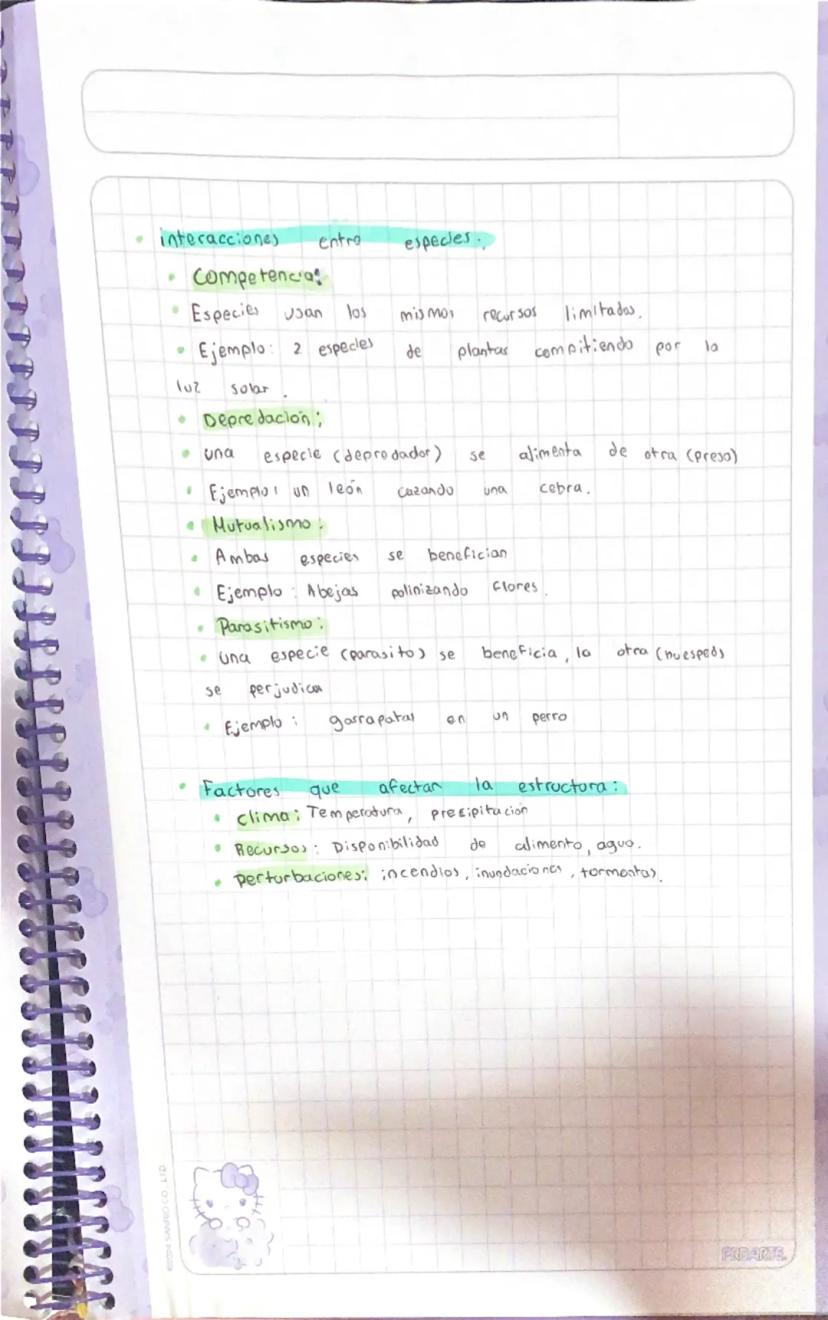 interacciones entre especies.
Competencia:
Especies usan los mismos recursos limitados.
Ejemplo: 2 especies de plantas compitiendo por la
luz solar.
Depredación:
una especie (depredador) se alimenta de otra (presa)
Ejemplo: un león cazando una cebra.
Mutualismo:
Ambas especies se benefician
Ejemplo: Abejas polinizando flores.
Parasitismo:
una especie (parasito) se beneficia, la otra (huesped)
se perjudica
Ejemplo: garrapatas en un perro
Factores que afectan la estructura:
clima: Temperatura, precipitación
Recursos: Disponibilidad de alimento, agua.
perturbaciones: incendios, inundaciones, tormentas.
SANRIO CO., LTD.
PROARTE